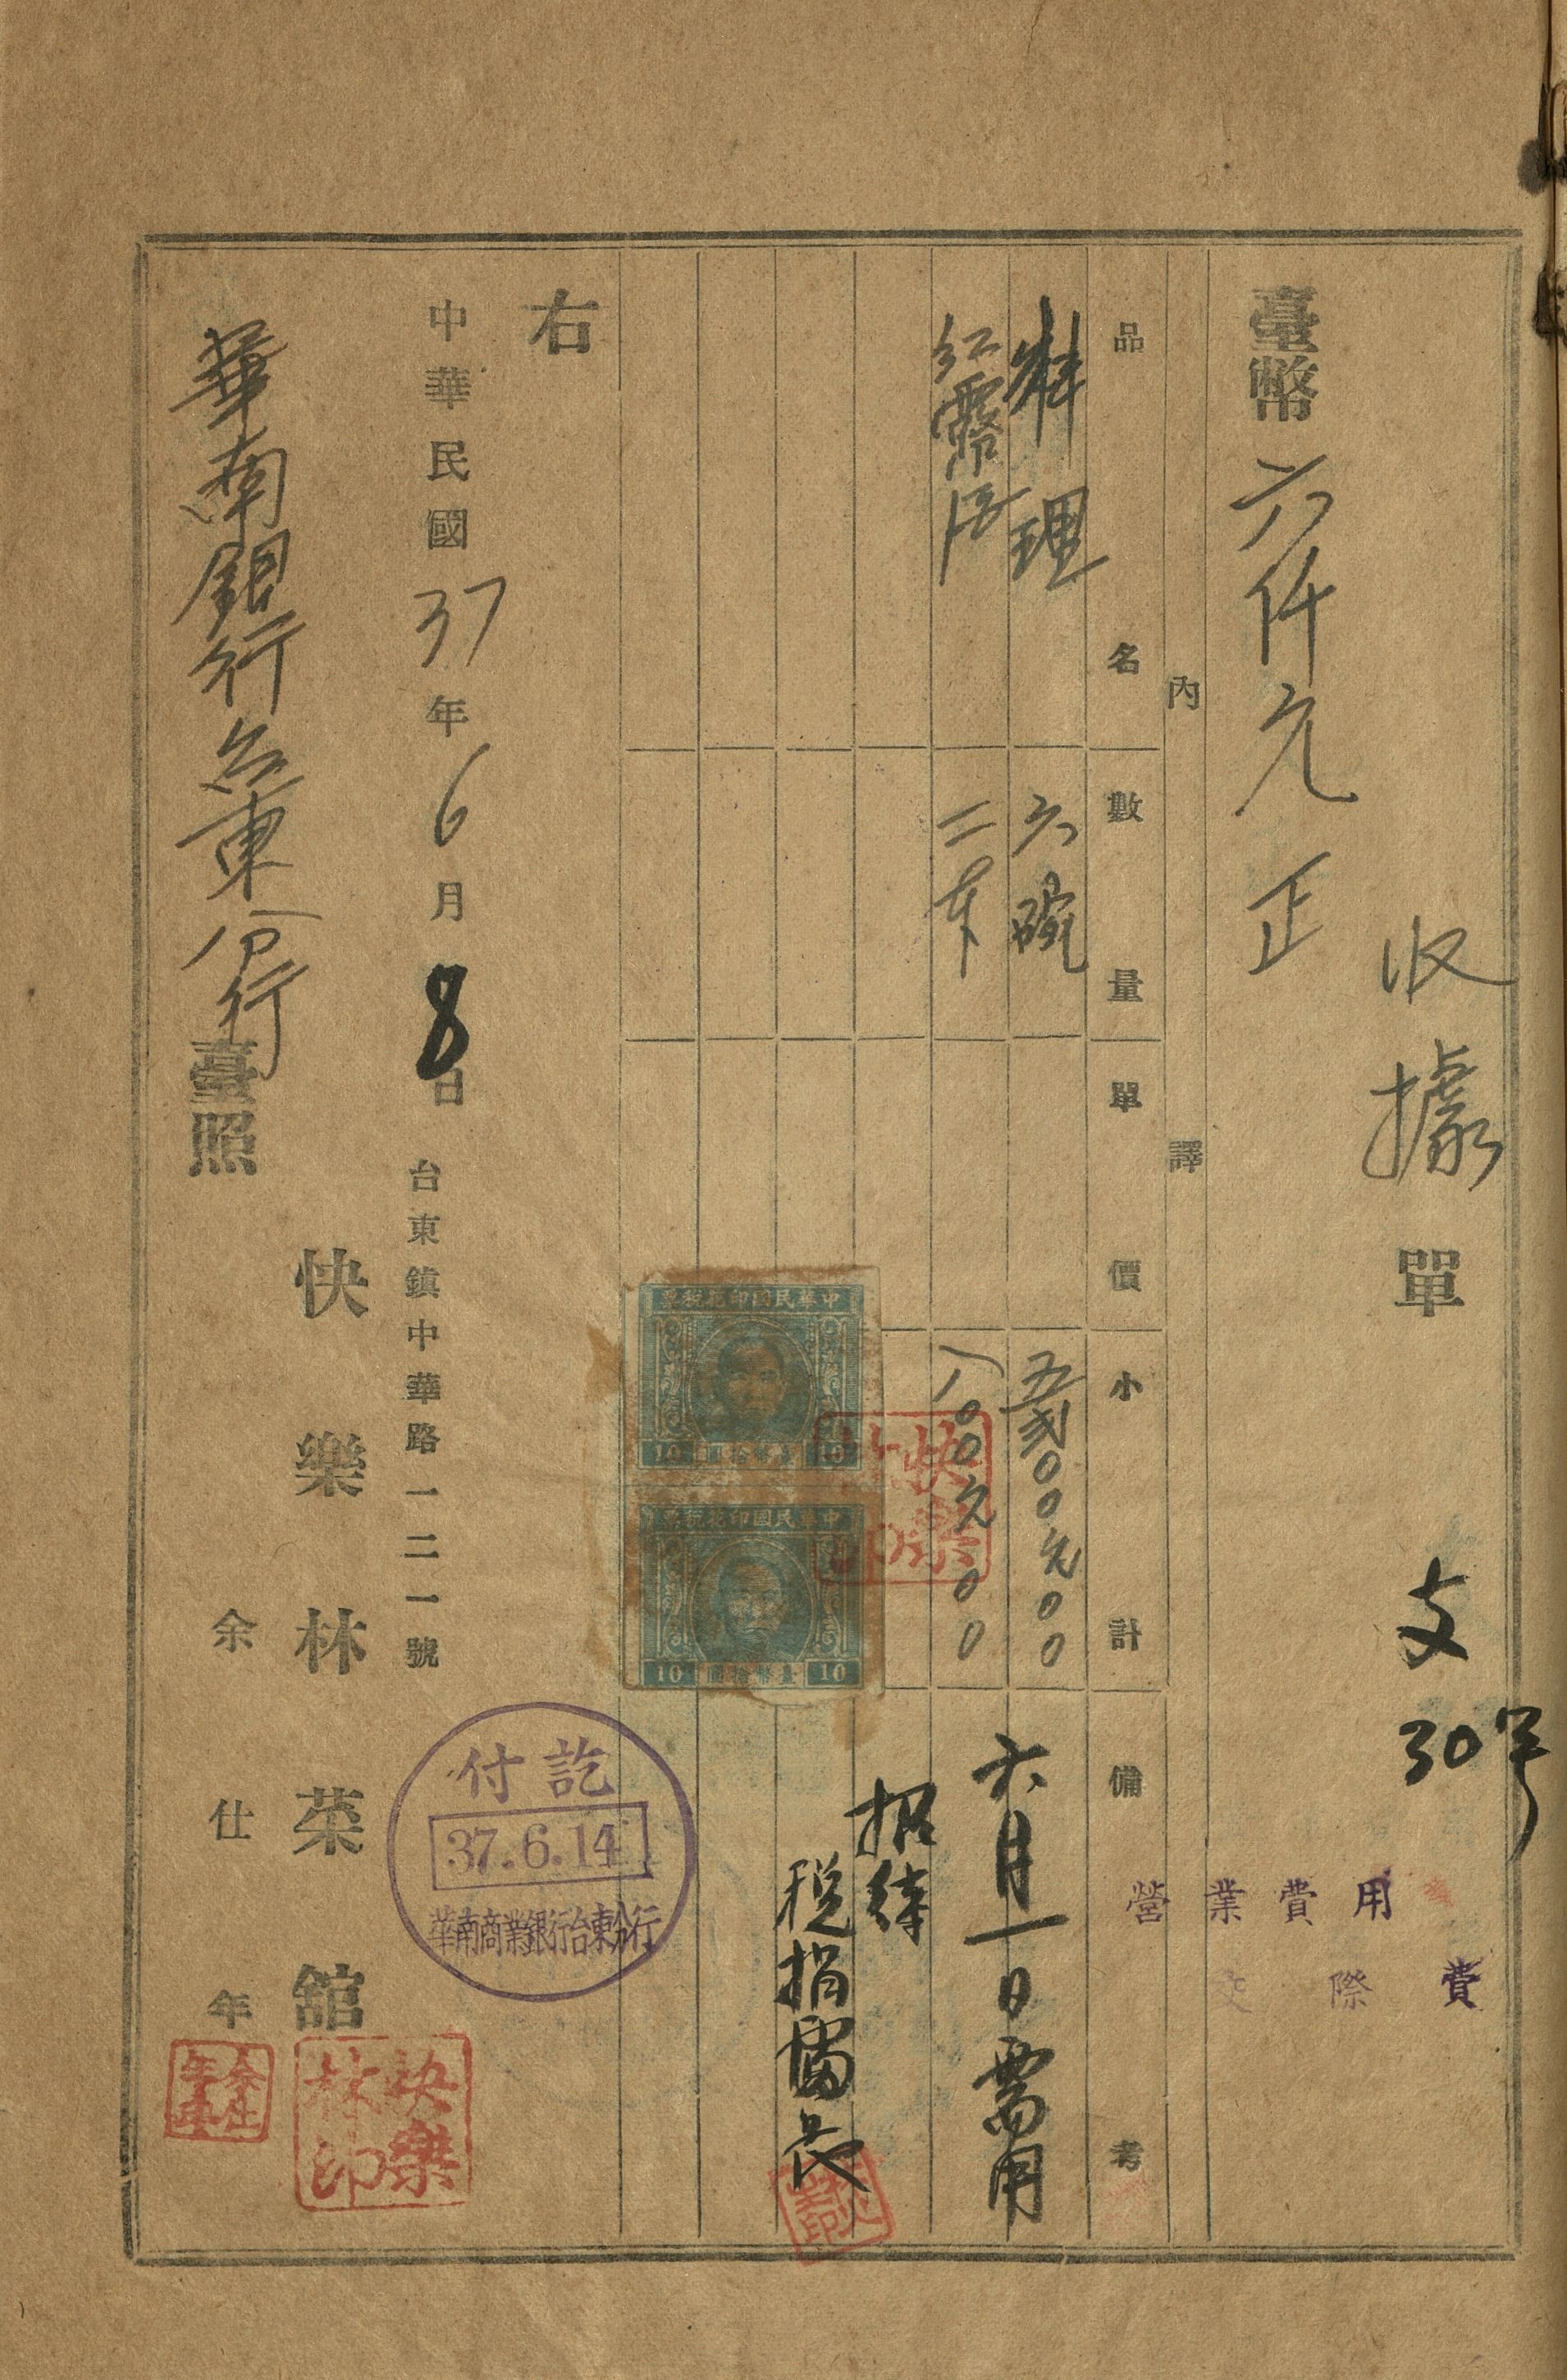 收據單
支
30号
營業費用
交際費
臺幣六仟元正
內譯
品名 數量 單價 小計 備考
料理 六碗 五弍00元00 六月一日需用
紅露酒 二本 八00元00
招待
稅捐處長
中華民國印花稅票
10 臺幣拾圓 10
中華民國印花稅票
10 臺幣拾圓 10
快樂
右
中華民國37年6月8日
台東鎮中華路一二一號
付訖
37.6.14
華南商業銀行台東分行
快樂林菜館
快樂林印
華南銀行台東分行臺照
余仕年